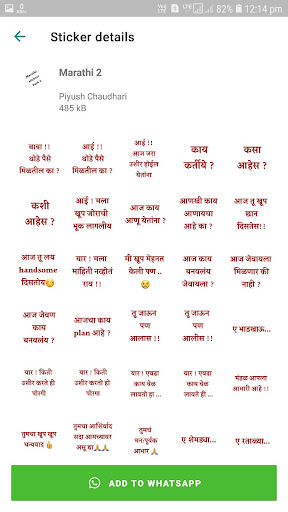 82% 12:14 pm
Sticker details
Marathi 2
Piyush Chaudhari
485 kB
बाबा !!
थोडे पैसे
मिळतील का ?
आई !!
थोडे पैसे
मिळतील का ?
आई !!
आज जरा
उशीर होईल
येतांना
काय
करतीये ?
कसा
आहेस ?
कशी
आहेस ?
आई ! मला
खूप जोराची
भूक लागलीय
आज काय
आणू येतांना ?
आणखी काय
आणायचा
आहे का ?
आज तू खूप
छान
दिसतेस!!
आज तू लय
handsome
दिसतोय😍
यार ! मला
माहिती नव्हतं
राव !!
मी खूप मेहनत
केली पण ..
😢
आज काय
बनवलंय
जेवायला ?
आज जेवायला
मिळणार की
नाही ?
आज जेवण
काय
बनवलंय ?
आजचा काय
plan आहे ?
तू जाऊन
पण
आलास !!
तू जाऊन
पण
आलीस !!
ए भाडखाऊ...
यार ! किती
उशीर करते ही
पोरगी
यार ! किती
उशीर करतो हा
पोरगा
यार ! एवढा
काय वेळ
लावतो हा ...
यार ! एवढा
काय वेळ
लावते ही ...
मंडळ आपला
आभारी आहे !!
तुमचा खूप खूप
धन्यवाद 👍
तुमचा आर्शिवाद
सदा आमच्यावर
असू द्या🙏🙏
तुमचं
मन:पूर्वक
आभार🙏
ए शेमड्या...
ए रताळ्या...
ADD TO WHATSAPP